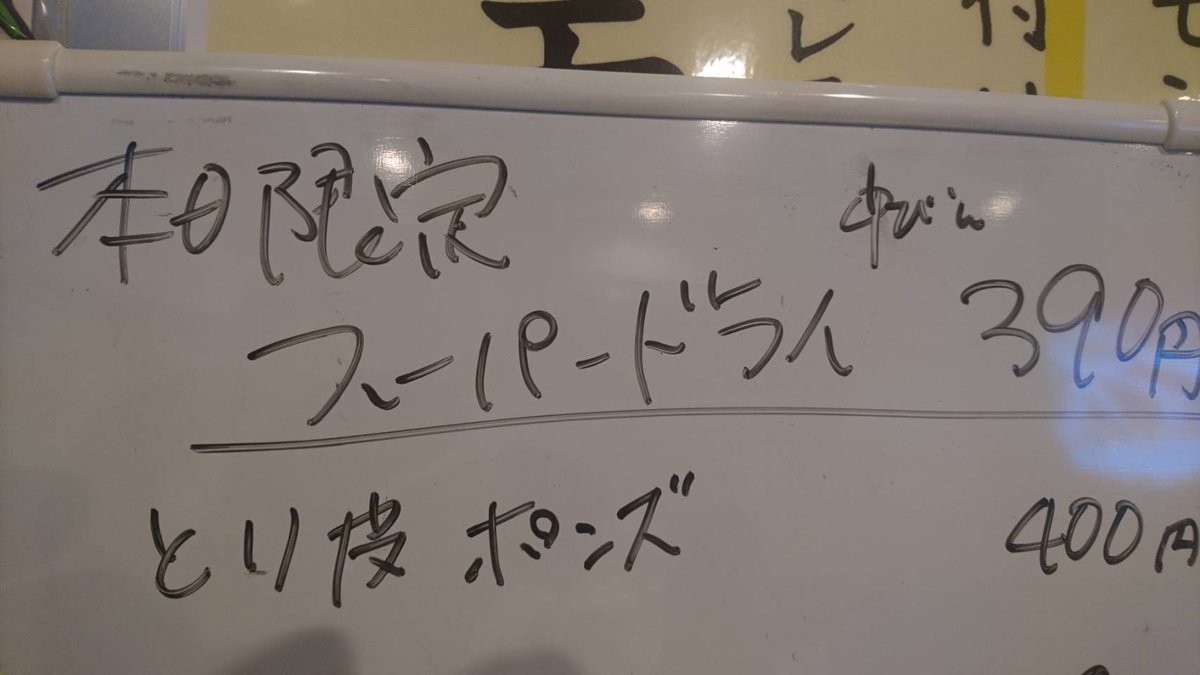 本日限定
中びん
スーパードライ 390円
とり皮 ポンズ 400円